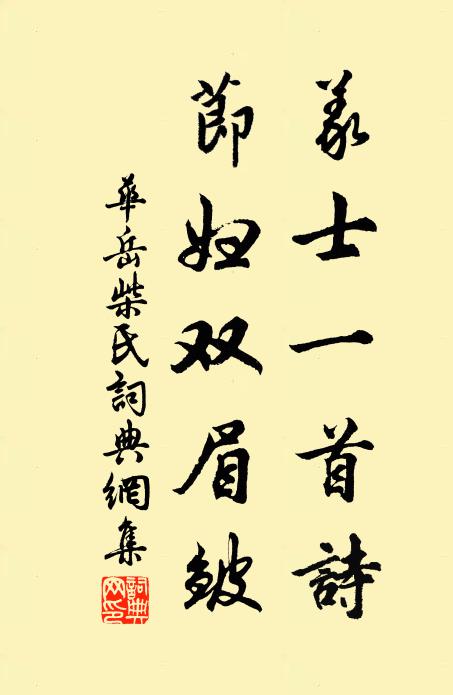 義士一首詩
節妇双眉皱
華岳柴氏詞典網集
詞典网印